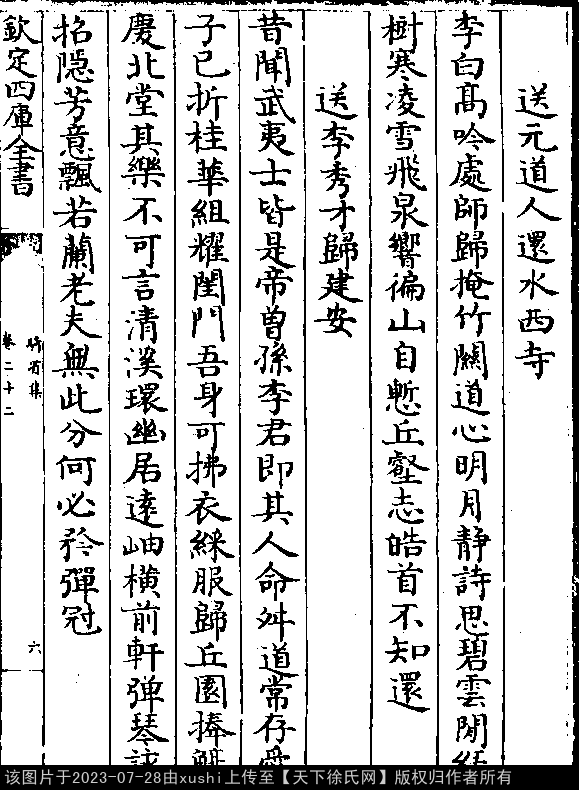 送元道人還水西寺
李白髙吟處師歸掩竹闗道心明月靜詩思碧雲閒
樹寒凌雪飛泉響徧山自慙丘壑志皓首不知還
送李秀才歸建安
昔聞武夷士皆是帝曽孫李君即其人命舛道常存
子已折桂華組耀閨門吾身可拂衣綵服歸丘園捧
慶北堂其樂不可言清溪環幽居逺岫横前軒弹琴
招隠芳意飄若蘭老夫無此分何必矜彈冠
欽定四庫全書
騎省集
卷二十二
六
该图片于2023-07-28由xushi上传至【天下徐氏网】版权归作者所有